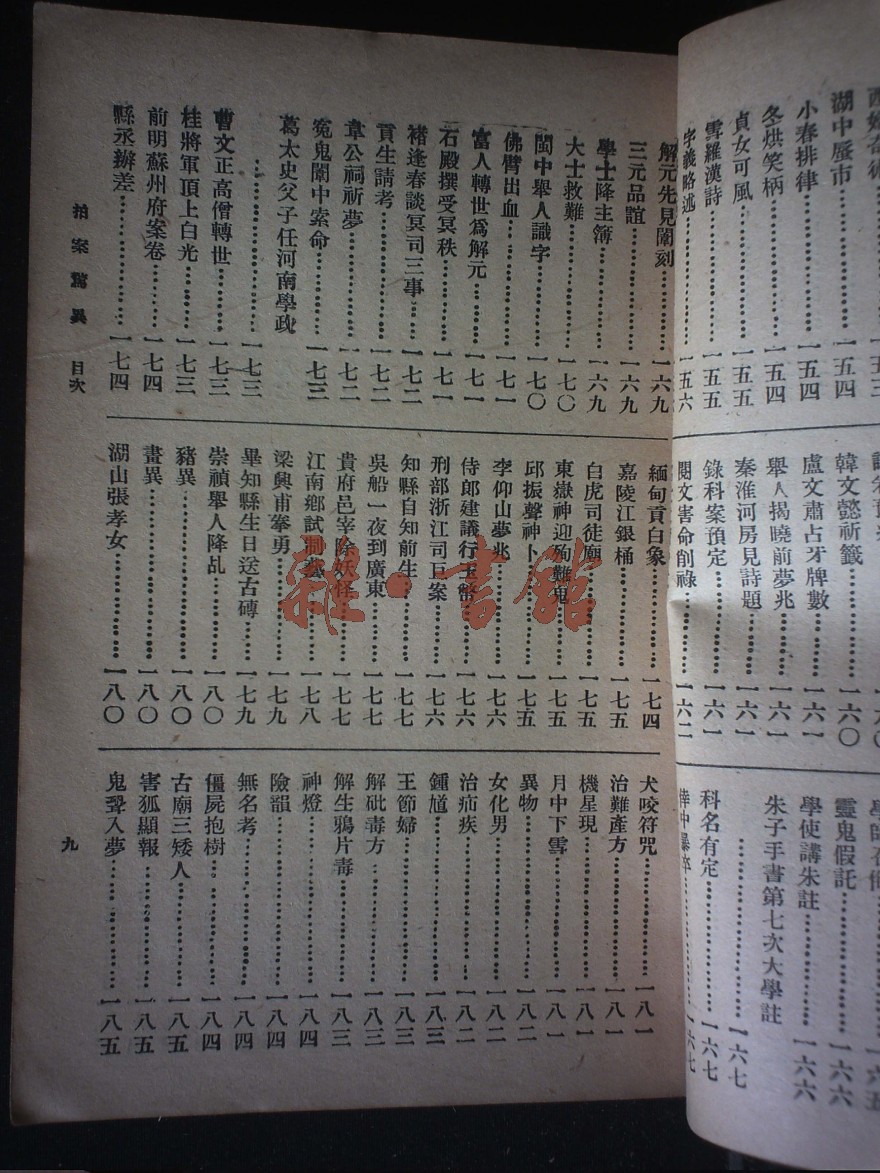 湖中蜃市…………一五四
小春排律…………一五四
冬烘笑柄…………一五四
貞女可風…………一五五
雪羅漢詩…………一五五
字義略述…………一五六
韓文懿祈籤…………一六〇
盧文肅占牙牌數…………一六一
舉人揭曉前夢兆…………一六一
秦淮河房見詩題…………一六一
錄科案預定…………一六一
閱文害命削祿…………一六二
靈鬼假託…………一六六
學使講朱註…………一六六
朱子手書第七次大學註
…………一六七
科名有定…………一六七
倖中暴卒…………一六七
解元先見闈刻…………一六九
三元品誼…………一六九
學士降主簿…………一六九
大士救難…………一七〇
閩中舉人識字…………一七〇
佛臂出血…………一七一
富人轉世爲解元…………一七一
石殿撰受冥秩…………一七一
褚逢春談冥司三事…………一七二
貢生請考…………一七二
韋公祠祈夢…………一七二
冤鬼闈中索命…………一七三
葛太史父子任河南學政
…………一七三
曹文正高僧轉世…………一七三
桂將軍頂上白光…………一七三
前明蘇州府案卷…………一七四
縣丞辦差…………一七四
緬甸貢白象…………一七四
嘉陵江銀桶…………一七五
白虎司徒廟…………一七五
東嶽神迎殉難鬼…………一七五
邱振聲神卜…………一七五
李仰山夢兆…………一七六
侍郎建議行玉幣…………一七六
刑部浙江司巨案…………一七六
知縣自知前生…………一七七
吳船一夜到廣東…………一七七
貴府邑宰除妖怪…………一七七
江南鄉試制藝…………一七八
梁興甫拳勇…………一七九
畢知縣生日送古磚…………一七九
崇禎舉人降乩…………一八〇
豬異…………一八〇
畫異…………一八〇
湖山張孝女…………一八〇
犬咬符咒…………一八一
治難產方…………一八一
機星現…………一八一
月中下雪…………一八一
異物…………一八二
女化男…………一八二
治疝疾…………一八二
鍾馗…………一八三
王節婦…………一八三
解砒毒方…………一八三
解生鴉片毒…………一八三
神燈…………一八四
險韻…………一八四
無名考…………一八四
僵屍抱樹…………一八四
古廟三矮人…………一八五
害狐顯報…………一八五
鬼聲入夢…………一八五
拍案驚異 目次
九
雜·書館